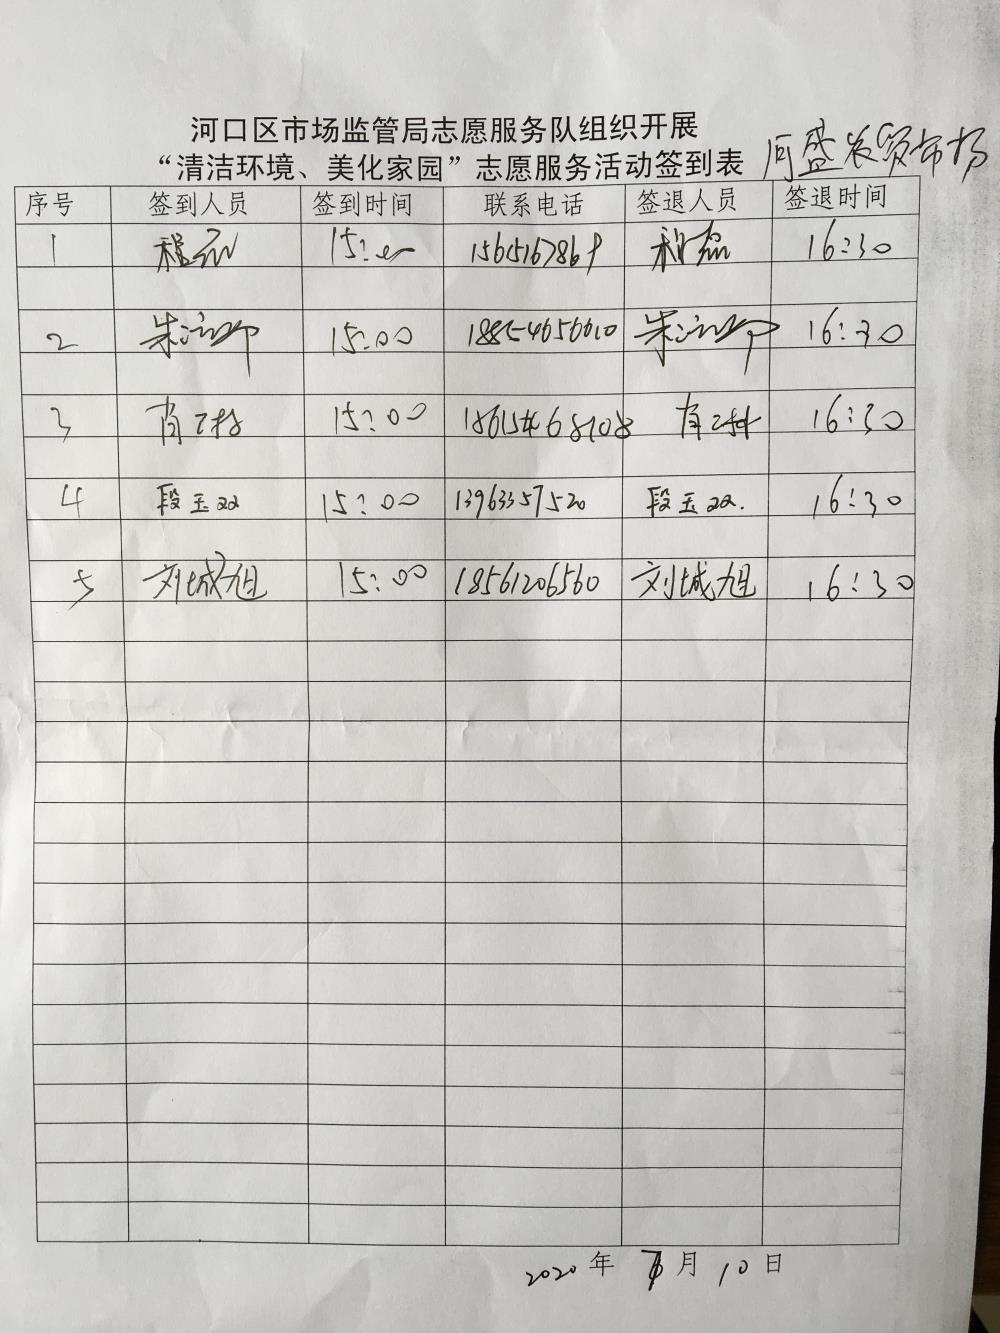 河口区市场监管局志愿服务队组织开展
“清洁环境、美化家园”志愿服务活动签到表 河盛农贸市场
序号 签到人员 签到时间 联系电话 签退人员 签退时间
1 程磊 15: 程磊 16:30
2 朱 15:00 朱 16:30
3 肖 15:00 肖 16:30
4 段玉双 15:00 13963357520 段玉双. 16:30
5 刘城旭 15:00 18561206560 刘城旭 16:30
2020年 月10日